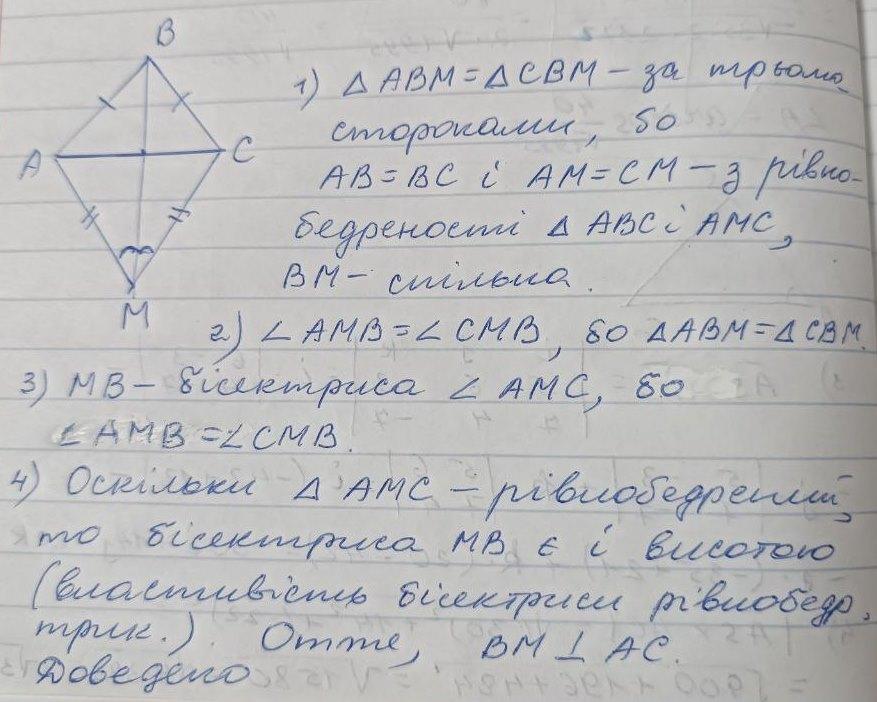 B
A
C
M
1) △ ABM = △ CBM – за трьома
сторонами, бо
AB = BC і AM = CM – з рівно-
бедреності △ ABC і AMC,
BM – спільна.
2) ∠ AMB = ∠ CMB, бо △ ABM = △ CBM.
3) MB – бісектриса ∠ AMC, бо
∠ AMB = ∠ CMB.
4) Оскільки △ AMC – рівнобедрений,
то бісектриса MB є і висотою
(властивість бісектриси рівнобедр.
трик.). Отже, BM ⊥ AC.
Доведено